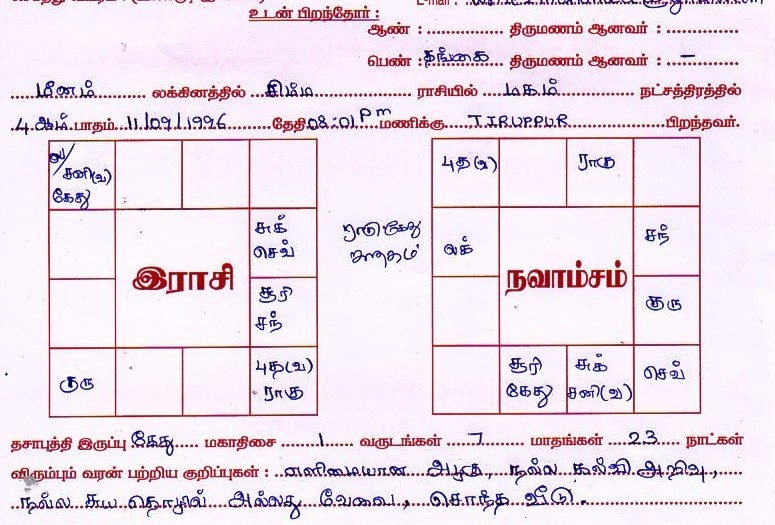 உடன் பிறந்தோர் :
ஆண் : .............. திருமணம் ஆனவர் : .............
பெண் : தங்கை திருமணம் ஆனவர் : ... – ...
மீனம் லக்கினத்தில் சிம்ம ராசியில் மகம் நட்சத்திரத்தில்
4 ஆம் பாதம் 11/09/1996 தேதி 08:01 Pm மணிக்கு TIRUPPUR பிறந்தவர்.
ல/
சனி(வ)
கேது
சுக்
செவ்
இராசி
சூரி
சந்
குரு
புத(வ)
ராகு
ராகு கேது
ஜாதகம்
புத(வ)
ராகு
லக்
சந்
நவாம்சம்
குரு
சூரி
கேது
சுக்
சனி(வ)
செவ்
தசாபுத்தி இருப்பு கேது மகாதிசை 1 வருடங்கள் 7 மாதங்கள் 23 நாட்கள்
விரும்பும் வரன் பற்றிய குறிப்புகள் : எளிமையான அழகு, நல்ல கல்வி அறிவு,
நல்ல சுய தொழில் அல்லது வேலை, சொந்த வீடு.